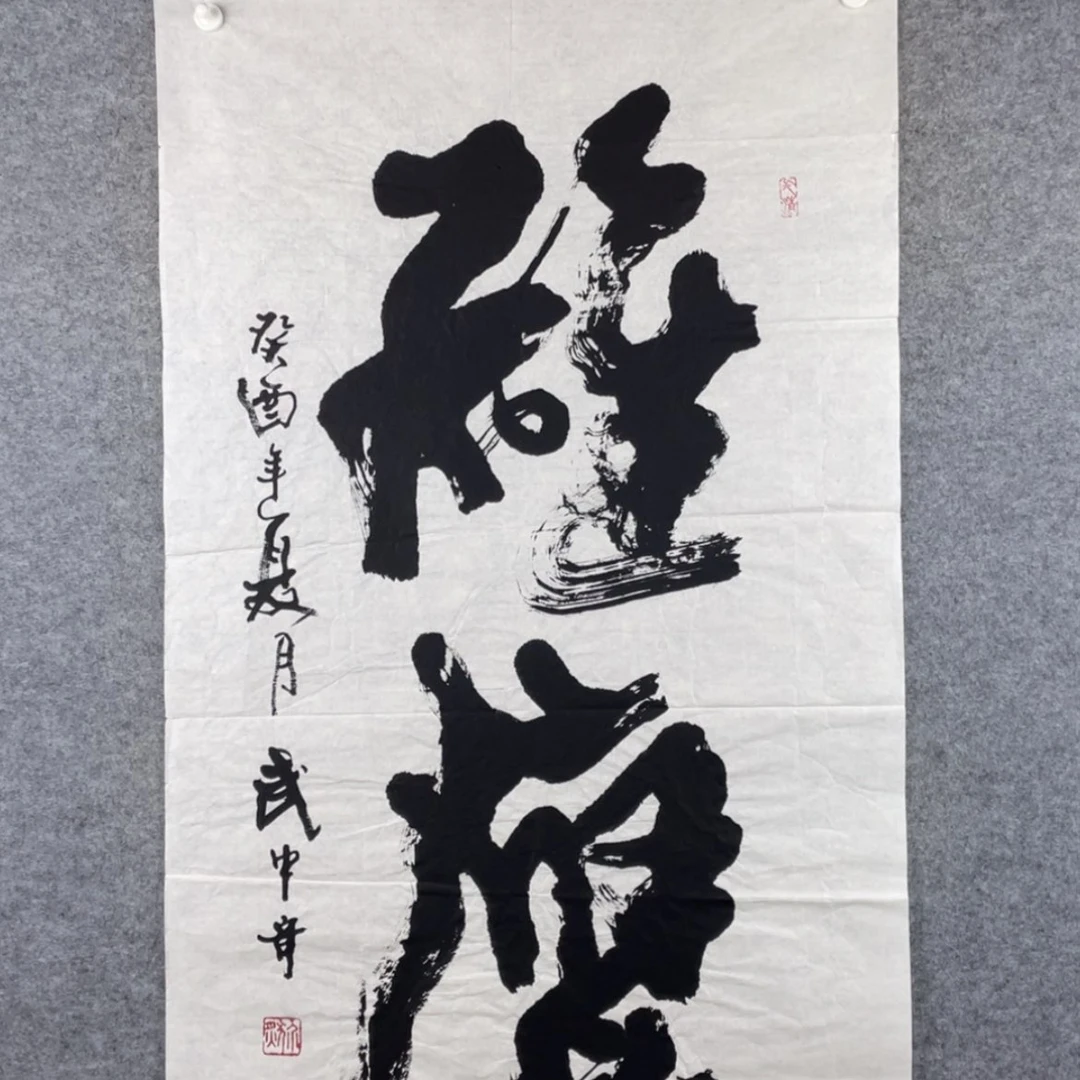 雄鷹
癸酉年夏月 武中奇